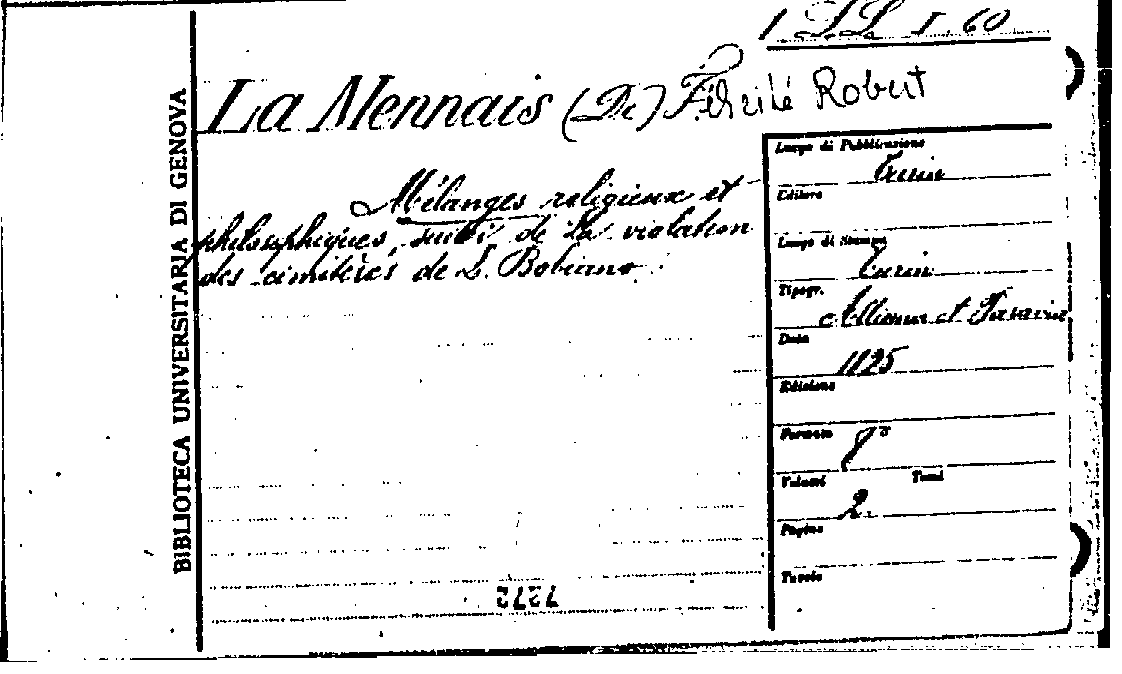 1 LL I. 60
BIBLIOTECA UNIVERSITARIA DI GENOVA
La Mennais (De) Félicité Robert
Mélanges religieux et
philosophiques, suivi de La violation
des cimitères de L. Bobiano.
Luogo di Pubblicazione
Turin
Editore
Luogo di Stampa
Turin
Tipogr.
et
Data
1825
Edizione
Formato 8°
Volumi Tomi
2.
Pagine
Tavole
7272